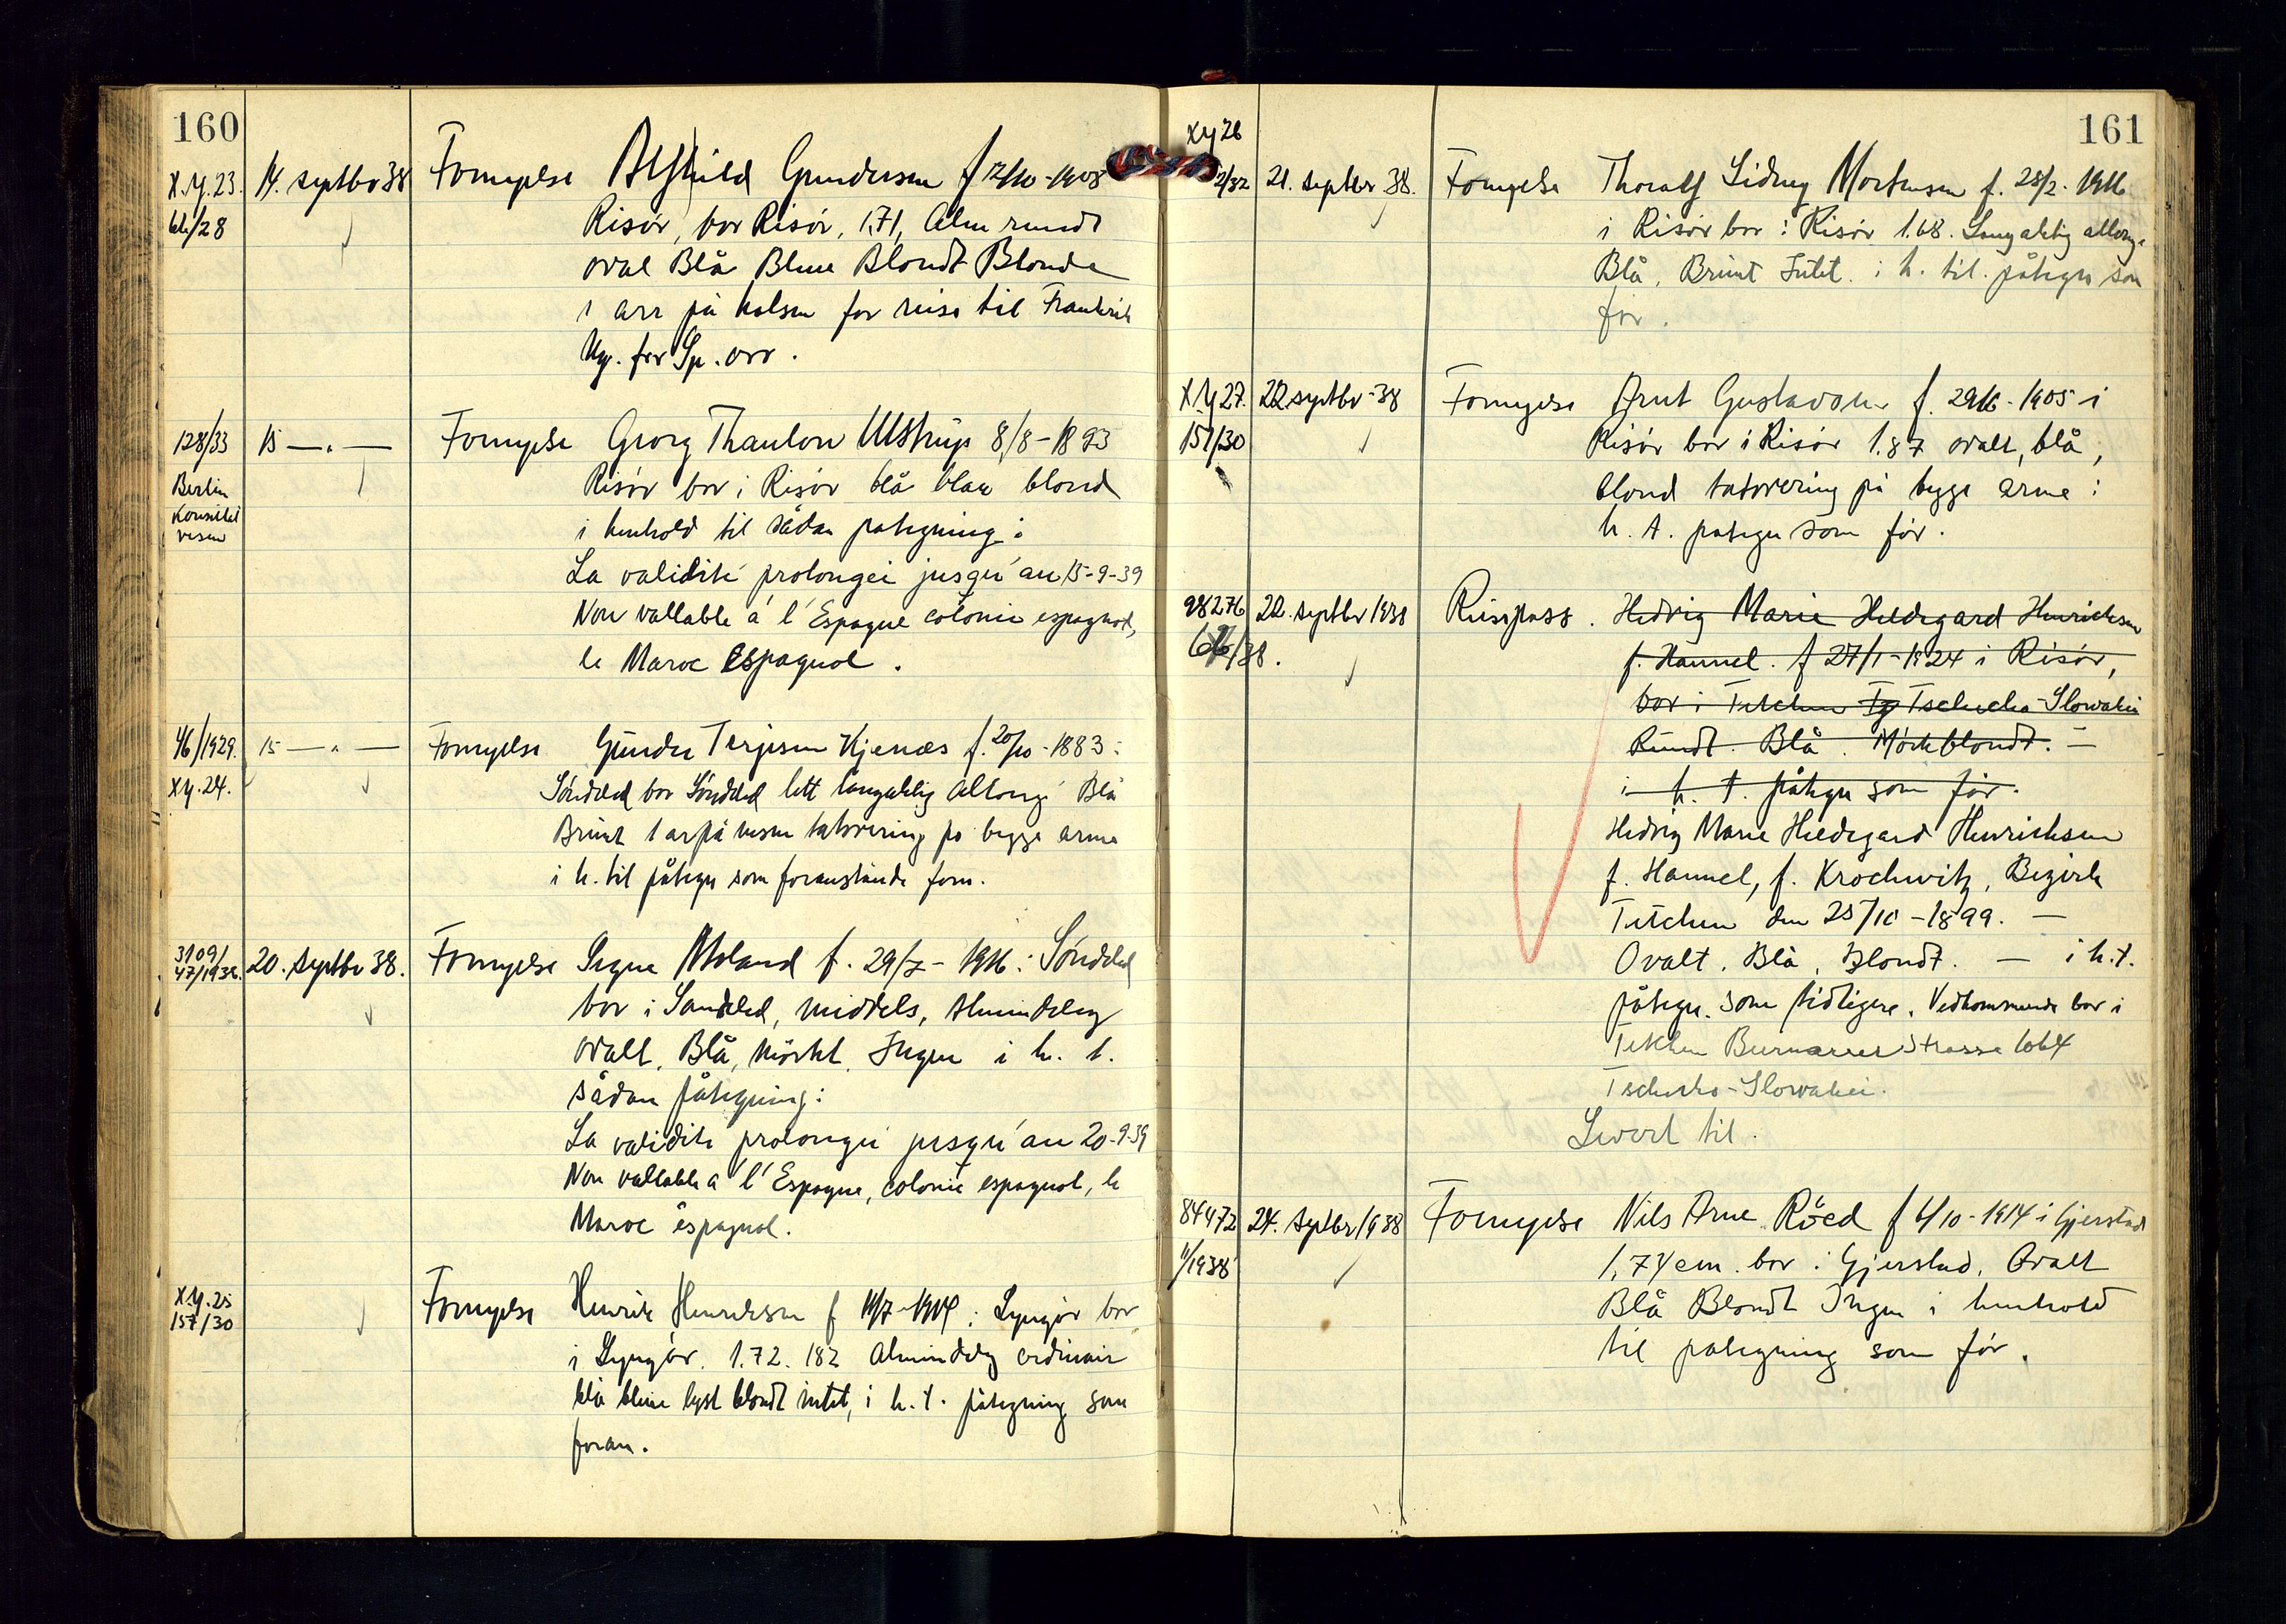 160
X.Y.23. 14. septbr 38 Fornyelse Alfhild Gundersen f 12/10-1908
66/28 Risör, bor Risör, 1,71, Alm rundt
oval Blå Blue Blondt Blonde
1 arr på halsen for reise til Frankrik
Ug. for Sp. ovv.
128/33 15 —"— Fornyelse Georg Thaulow Ulstrup 8/8-1893
Berlin Risör bor i Risör blå blau blond
Konsulat
vesen i henhold til sådan påtegning:
La validité prolongei jusqu'au 15-9-39
Non vallable á l'Espagne colonie espagnol,
le Maroc Espagnol.
46/1929. 15 —"— Fornyelse Gunder Terjesen Kjenæs f. 20/10-1883 i
XY.24. Söndeled bor Söndeled lett langaktig Allongé Blå
Brunt 1 ar på nesen tatovering på begge arme
i h. til påtegn som foranstående forn.
3109/
47/1938. 20. septbr 38. Fornyelse Signe Moland f. 29/7-1916 i Söndeled
bor i Söndeled, middels, Almindelig
ovalt, Blå, mörkt. Ingen i h. t.
sådan påtegning:
La validite prolongei jusqu'au 20-9-39
Non vallable a l'Espagne, colonie espagnol, le
Maroc espagnol.
X.Y.25
157/30 Fornyelse Henrik Henriksen f 11/7-1914 i Lyngör bor
i Lyngör. 1.72. 182 Almindelig ordinair
blå bleue lyst blondt intet, i h. t. påtegning som
foran.
161
XY 26
2/32 21. septbr 38. Fornyelse Thoralf Sidney Mortensen f. 28/2-1916
i Risör bor i Risör 1.68. Langaktig allonge
Blå, Brunt Intet. i h. til. påtegn som
för.
X.Y.27. 22 septbr-38 Fornyelse Arnt Gustavsen f. 29/6-1905 i
151/30 Risör bor i Risör 1.87 ovalt, blå,
blond tatovering på begge arme i
h. t. påtegn som för.
98276 22. septbr 1938 Reisepass. Hedvig Marie Hildegard Henrichsen
66/38. f. Hannel. f 27/1-1924 i Risör,
bor i Tetchen Tschecho-Slowakei
Rundt. Blå. Mörkblondt. —
i h. t. påtegn som för.
Hedvig Marie Hildegard Henrichsen
f. Hannel, f. Krochwitz, Bezirk
Tetchen den 25/10-1899. —
Ovalt. Blå, Blondt. — i h.t.
påtegn. som tidligere. Vedkommende bor i
Tetchen Strasse 1064
Tschecho-Slowakei.
Levert til.
84472 24. septbr 1938 Fornyelse Nils Arne Röed f 6/10-1914 i Gjerstad
11/1938 1,74 cm. bor i Gjerstad, Ovalt
Blå Blondt Ingen i henhold
til påtegning som för.